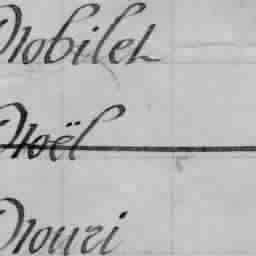 Nobilet
Noël
Nouri